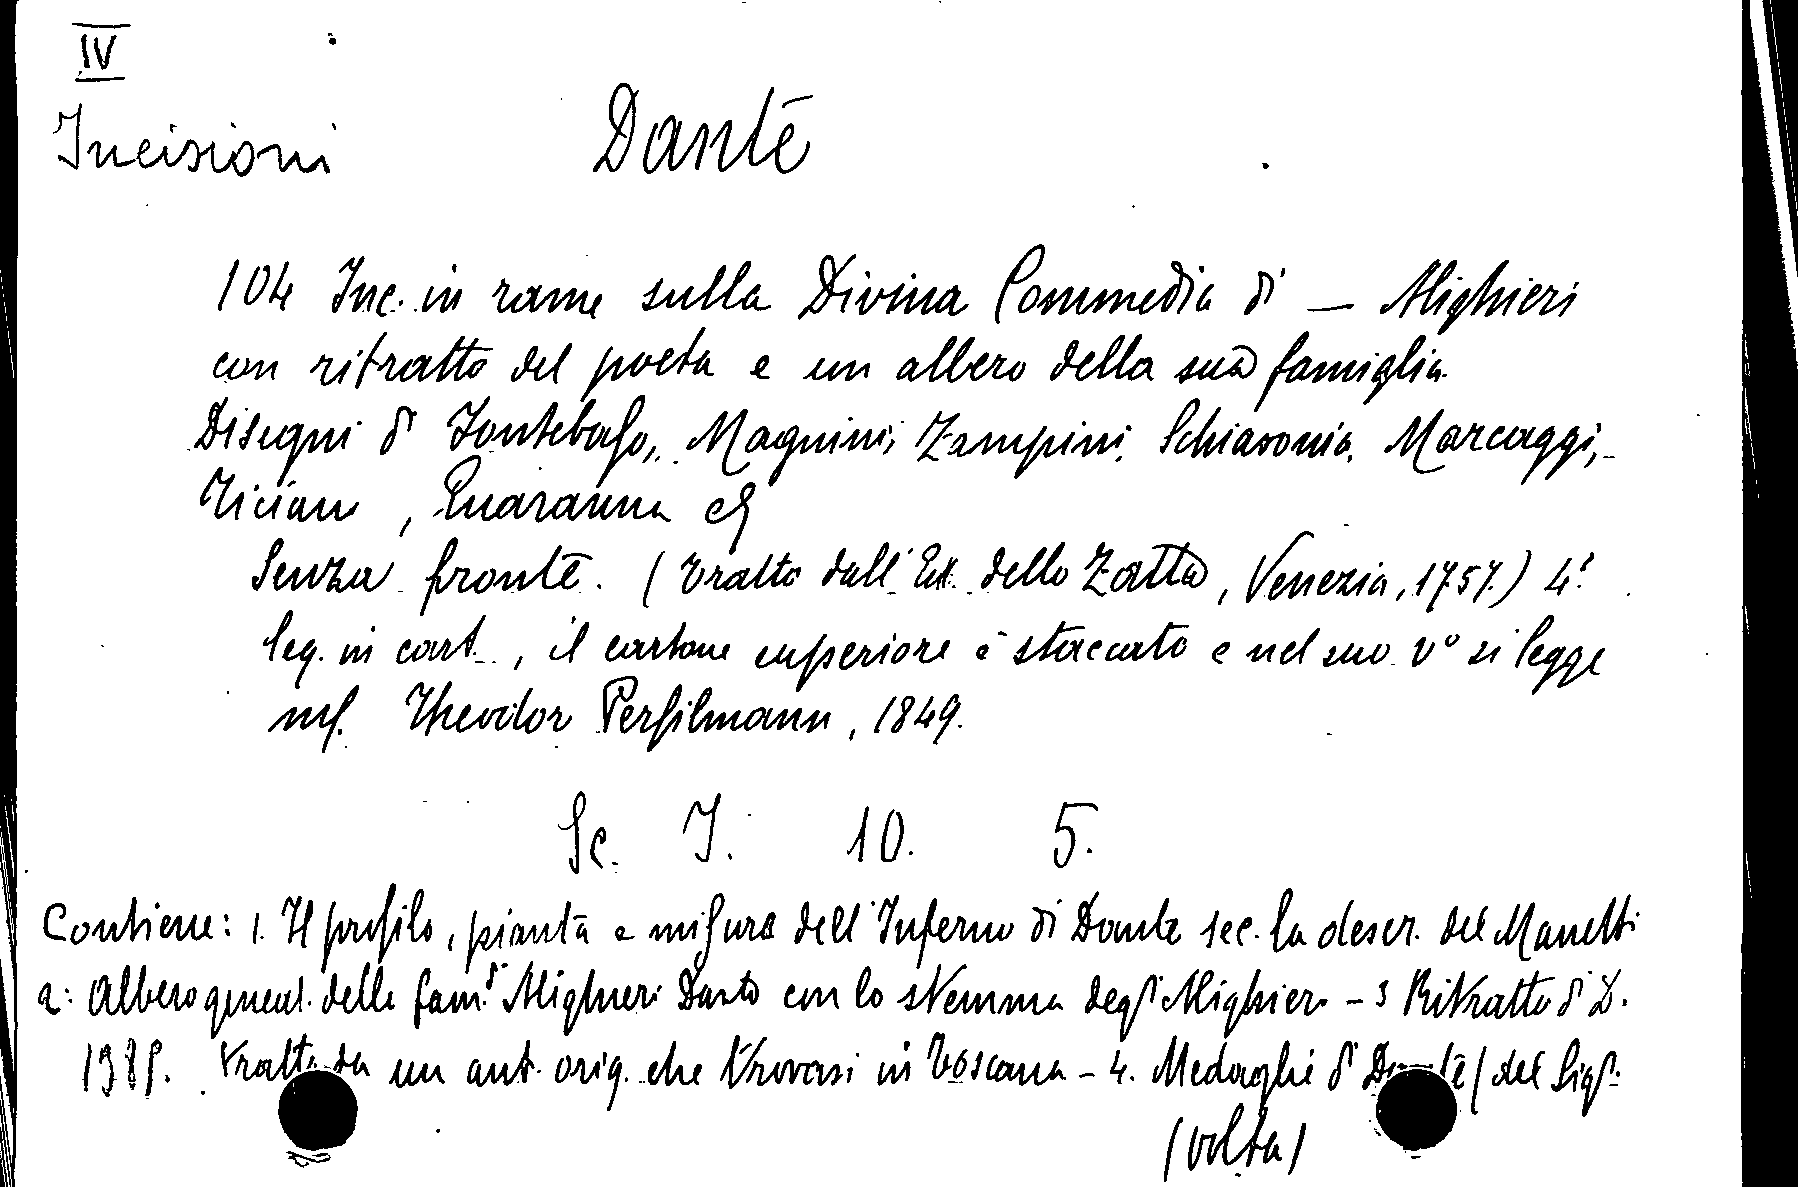 IV
Incisioni Dante
104 Inc. in rame sulla Divina Commedia di — Alighieri
con ritratto del poeta e un albero della sua famiglia.
Disegni di Fontebasso, Magnini, Zampini, Schiavonia, Marcaggi,
Tician, Guaranna
Senza fronte. (tratto dall' Ed. dello Zatta, Venezia, 1757.) 4º.
leg. in cart., il cartone superiore è staccato e nel suo vº si legge
ms. Theodor Persilmann, 1849.
Sc. I. 10. 5.
Contiene: 1. Il profilo, pianta e misura dell' Inferno di Dante sec. la descr. del Manetti
2: Albero geneal. della fam. Alighieri con lo stemma degli Alighieri – 3 Ritratto di D.
tratto da un ant. orig. che trovasi in Toscana – 4. Medaglie di Dante / del
(volta)